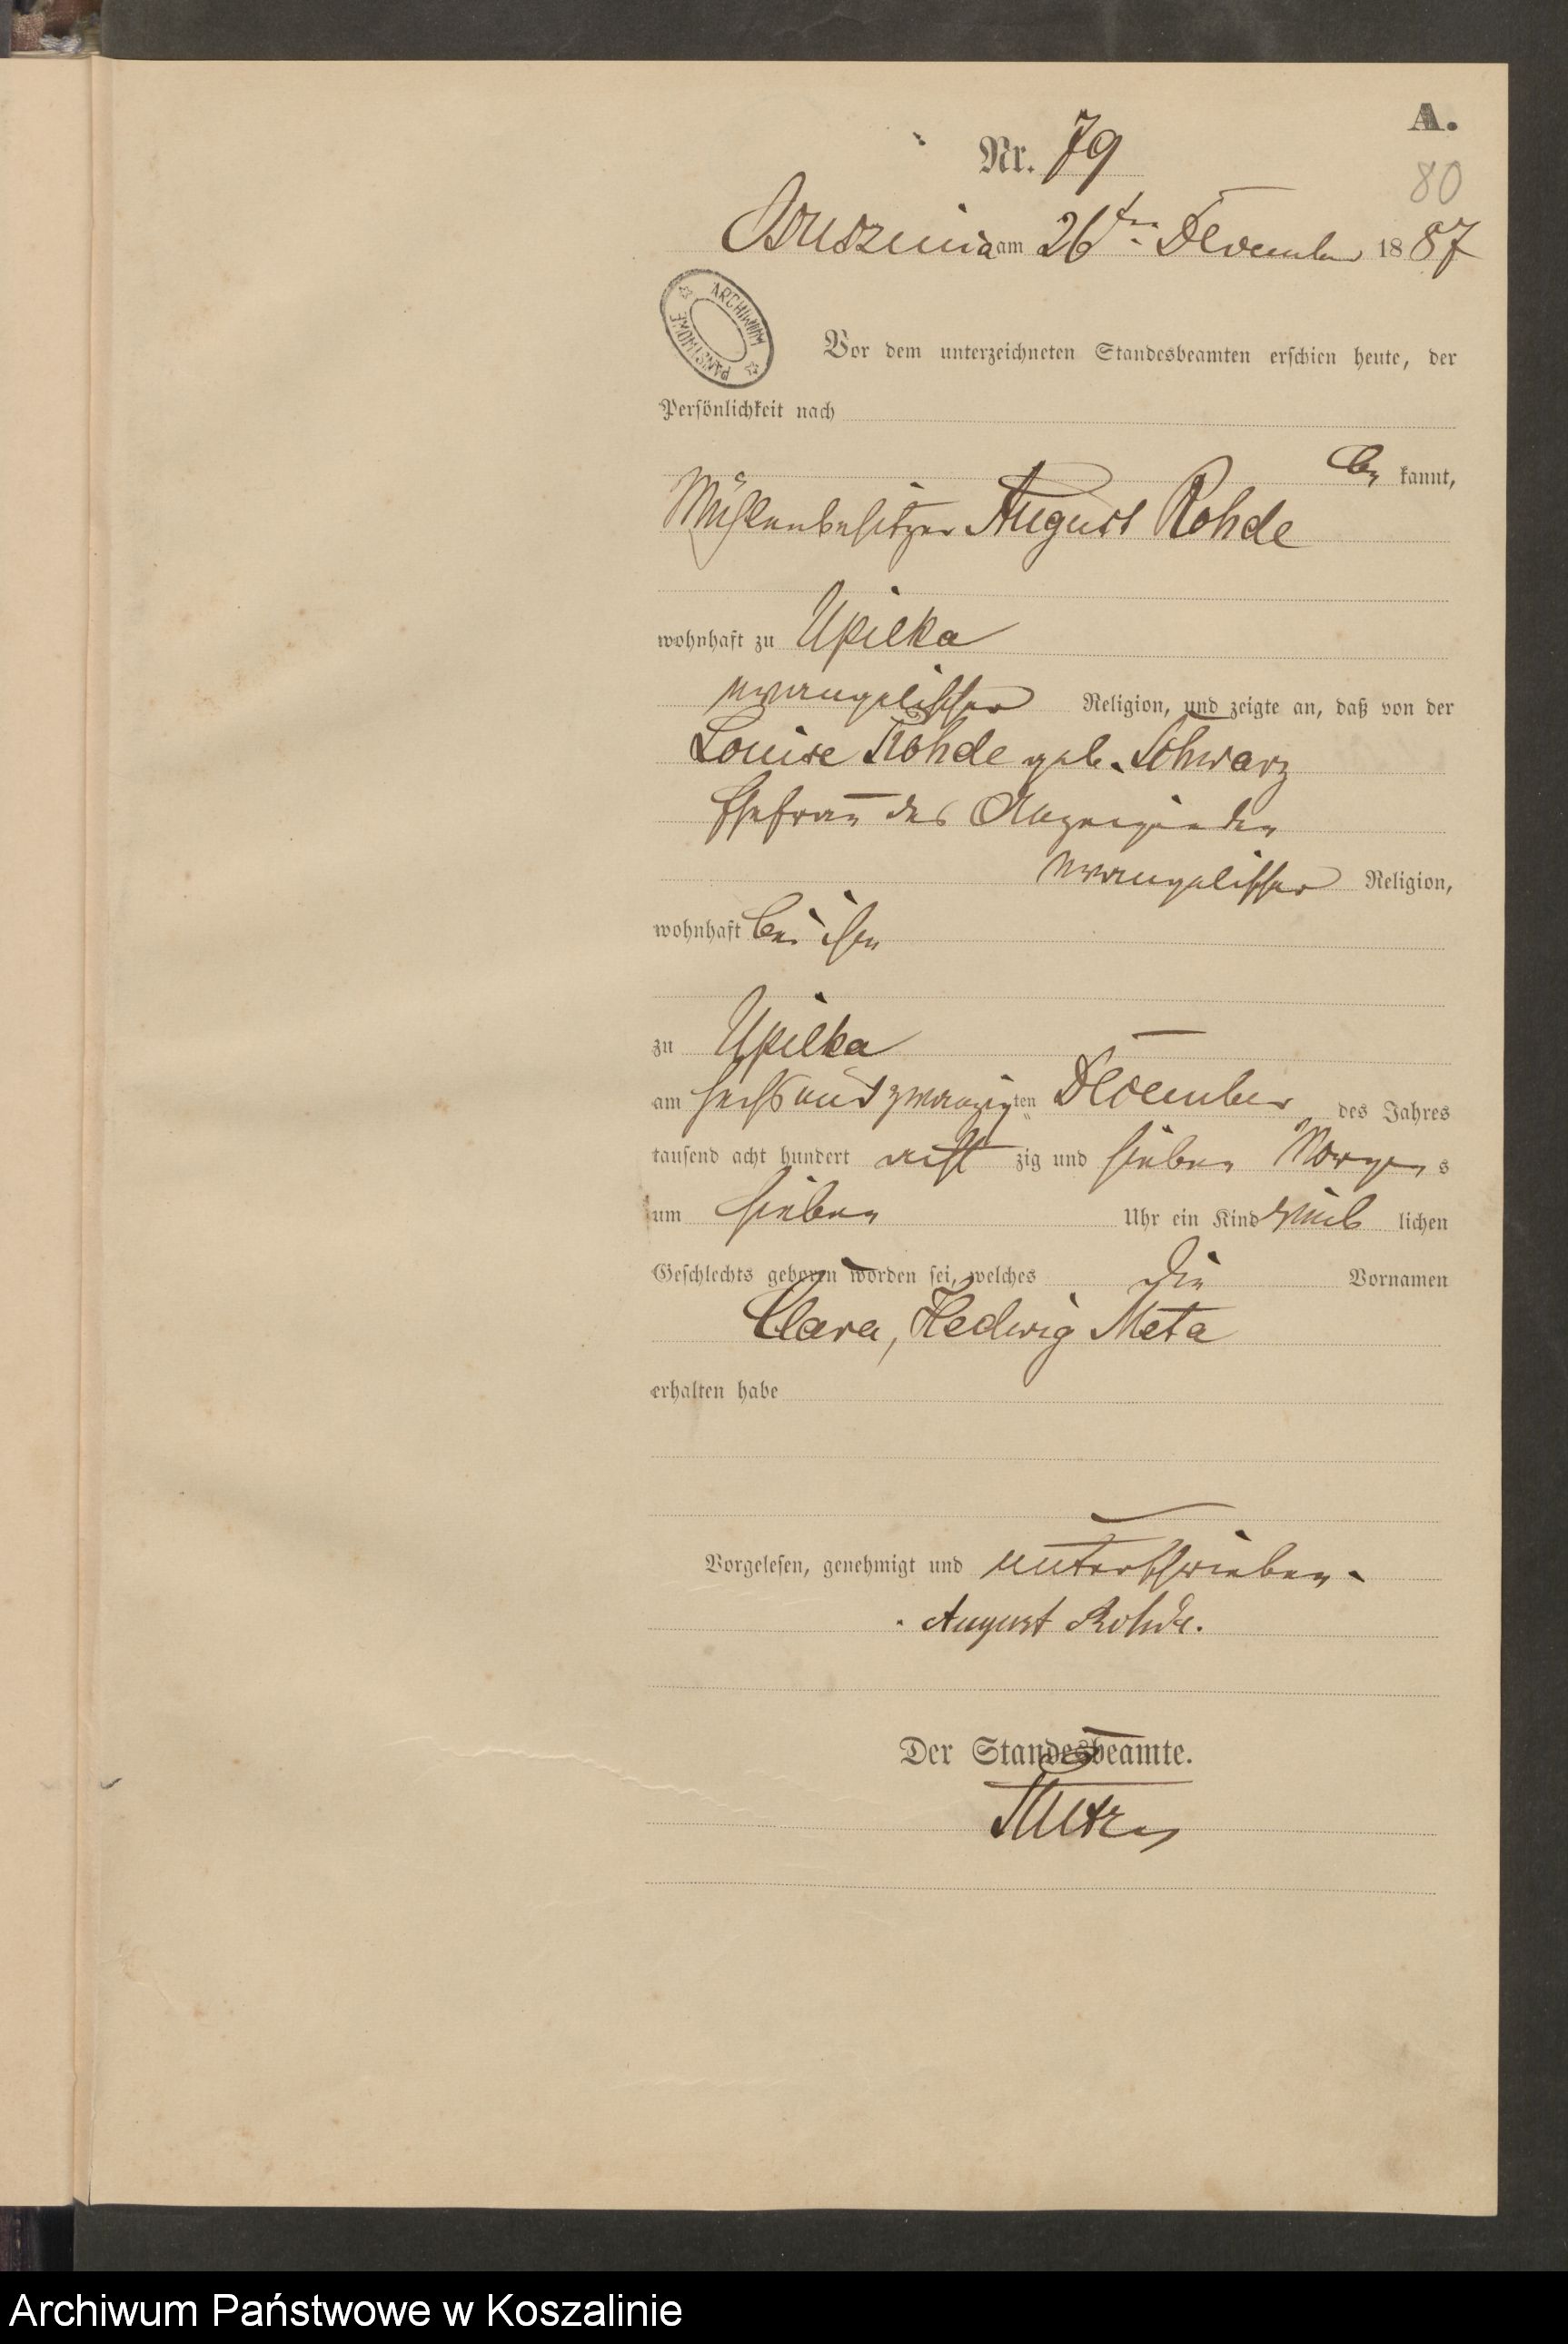 A.
Nr. 79
80
am 26ten December 1887
ARCHIWUM PAŃSTWOWE
Vor dem unterzeichneten Standesbeamten erschien heute, der
Persönlichkeit nach
be kannt,
Mühlenbesitzer August Rohde
wohnhaft zu Upilka
evangelischer Religion, und zeigte an, daß von der
Louise Rohde geb. Schwarz
Ehefrau des Anzeigenden
evangelischer Religion,
wohnhaft bei ihm
zu Upilka
am sechsundzwanzigten December des Jahres
tausend acht hundert acht zig und sieben Morgens
um sieben Uhr ein Kind weib lichen
Geschlechts geboren worden sei, welches die Vornamen
Clara, Hedwig Meta
erhalten habe
Vorgelesen, genehmigt und unterschrieben.
August Rohde.
Der Standesbeamte.
Archiwum Państwowe w Koszalinie